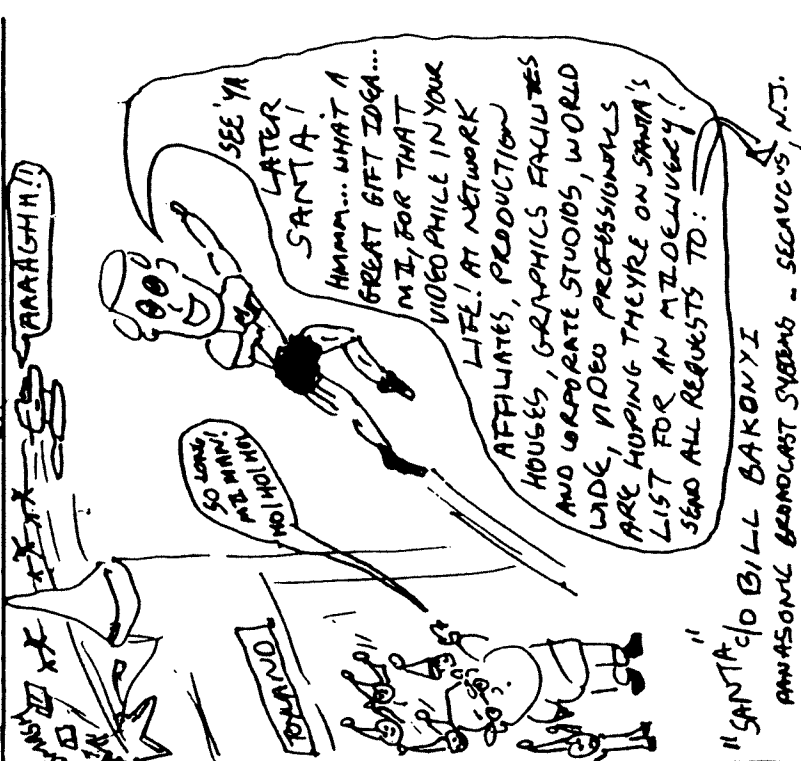 AAAAGHH!!
SEE YA
LATER
SANTA!
HMMM... WHAT A
GREAT GIFT IDEA...
MII, FOR THAT
VIDEOPHILE IN YOUR
LIFE! AT NETWORK
AFFILIATES, PRODUCTION
HOUSES, GRAPHICS FACILITES
AND CORPORATE STUDIOS, WORLD
WIDE, VIDEO PROFESSIONALS
ARE HOPING THEY'RE ON SANTA'S
LIST FOR AN MII DELIVERY!
SEND ALL REQUESTS TO:
SO LONG
MII MAN!
HO! HO!
HO! HO! HO!
"SANTA"
C/O BILL BAKONYI
PANASONIC BROADCAST SYSTEMS - SECAUCUS, N.J.